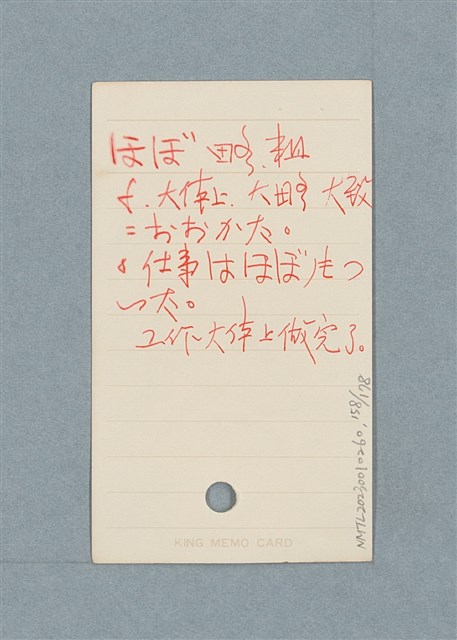 ほぼ 略.粗
大体上.大略 大致
=おおかた。
仕事はほぼ つ
いた。
工作大体上做完了。
KING MEMO CARD
NMTL20230010260 .158/178